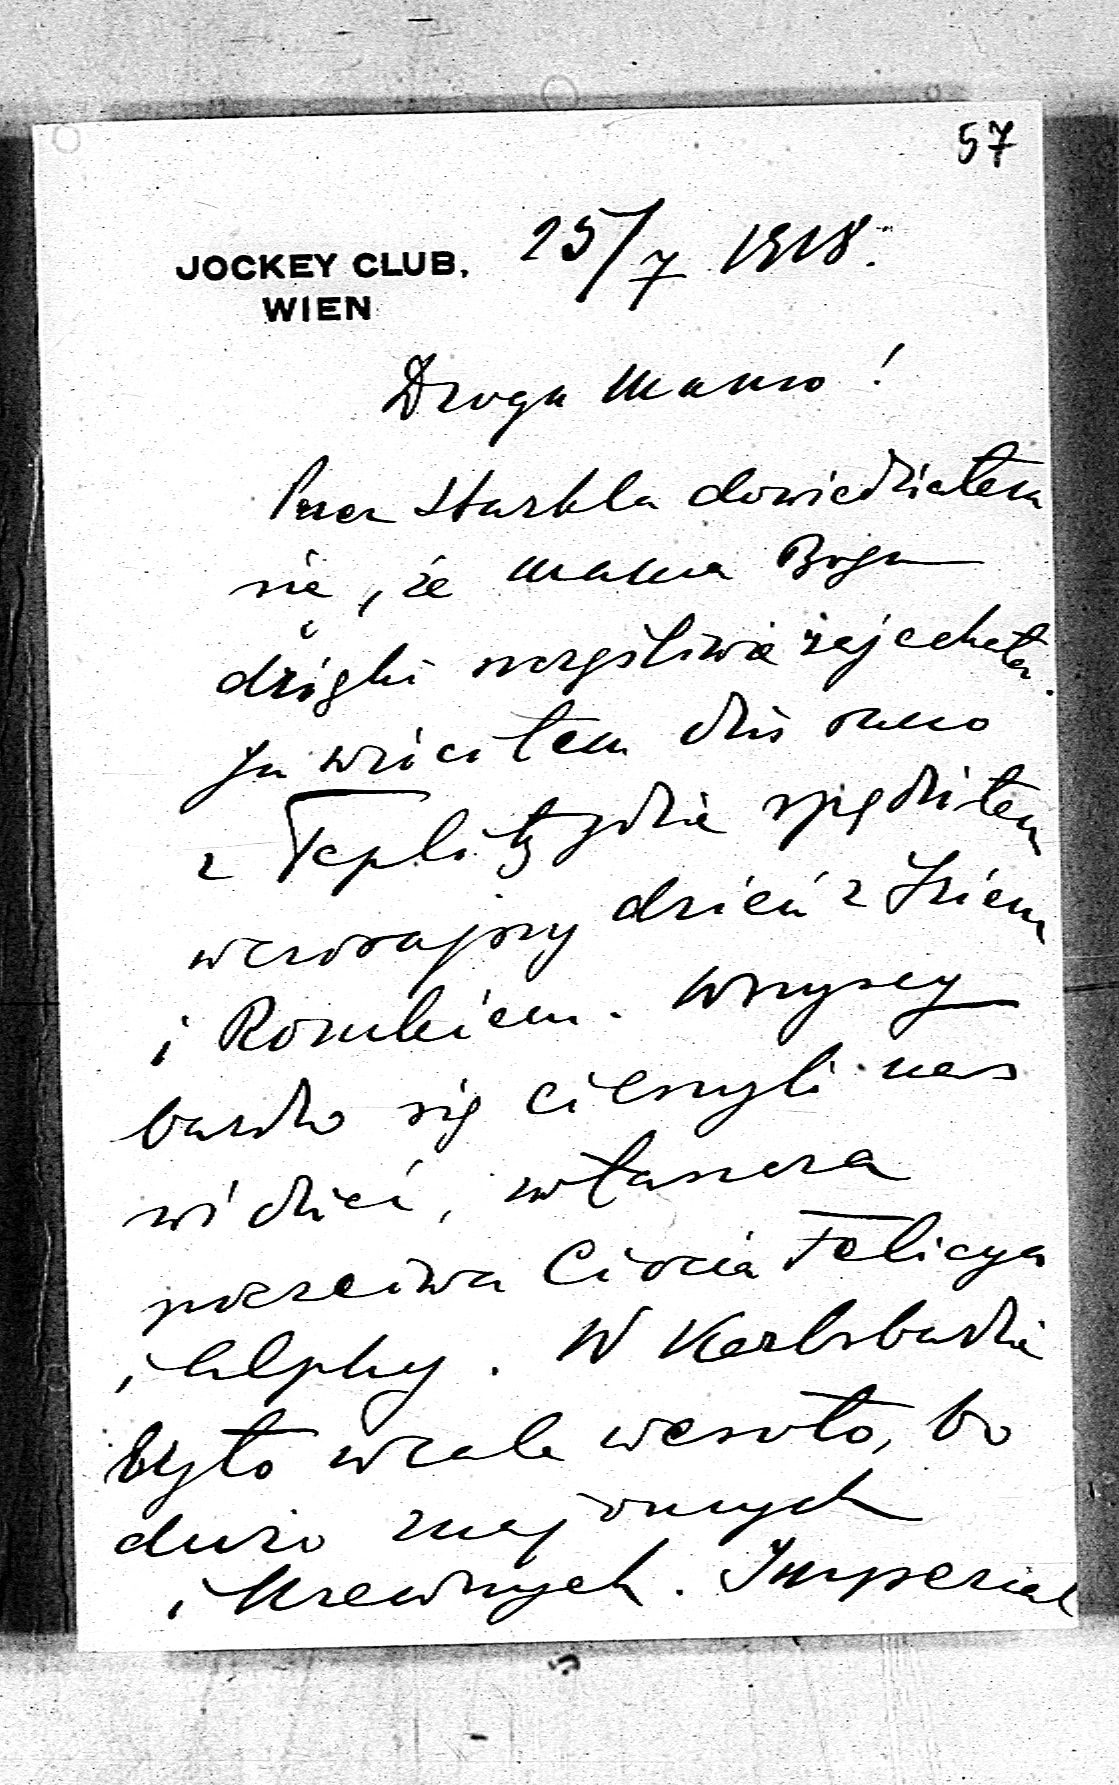 57
JOCKEY CLUB, 25/7 1918.
WIEN
Droga Mamo!
Przez Starkla dowiedziałem
się, że Mama Bogu
dzięki szczęśliwie zajechała.
Ja wróciłem dziś rano
z Teplitz gdzie spędziłem
wczorajszy dzień z Iziem
i Romkiem. Wszyscy
bardzo się cieszyli nas
widzieć, zwłaszcza
poczciwa Ciocia Felicya
i Alphy. W Karlsbadzie
było wcale wesoło, bo
dużo znajomych
i krewnych. Imperial